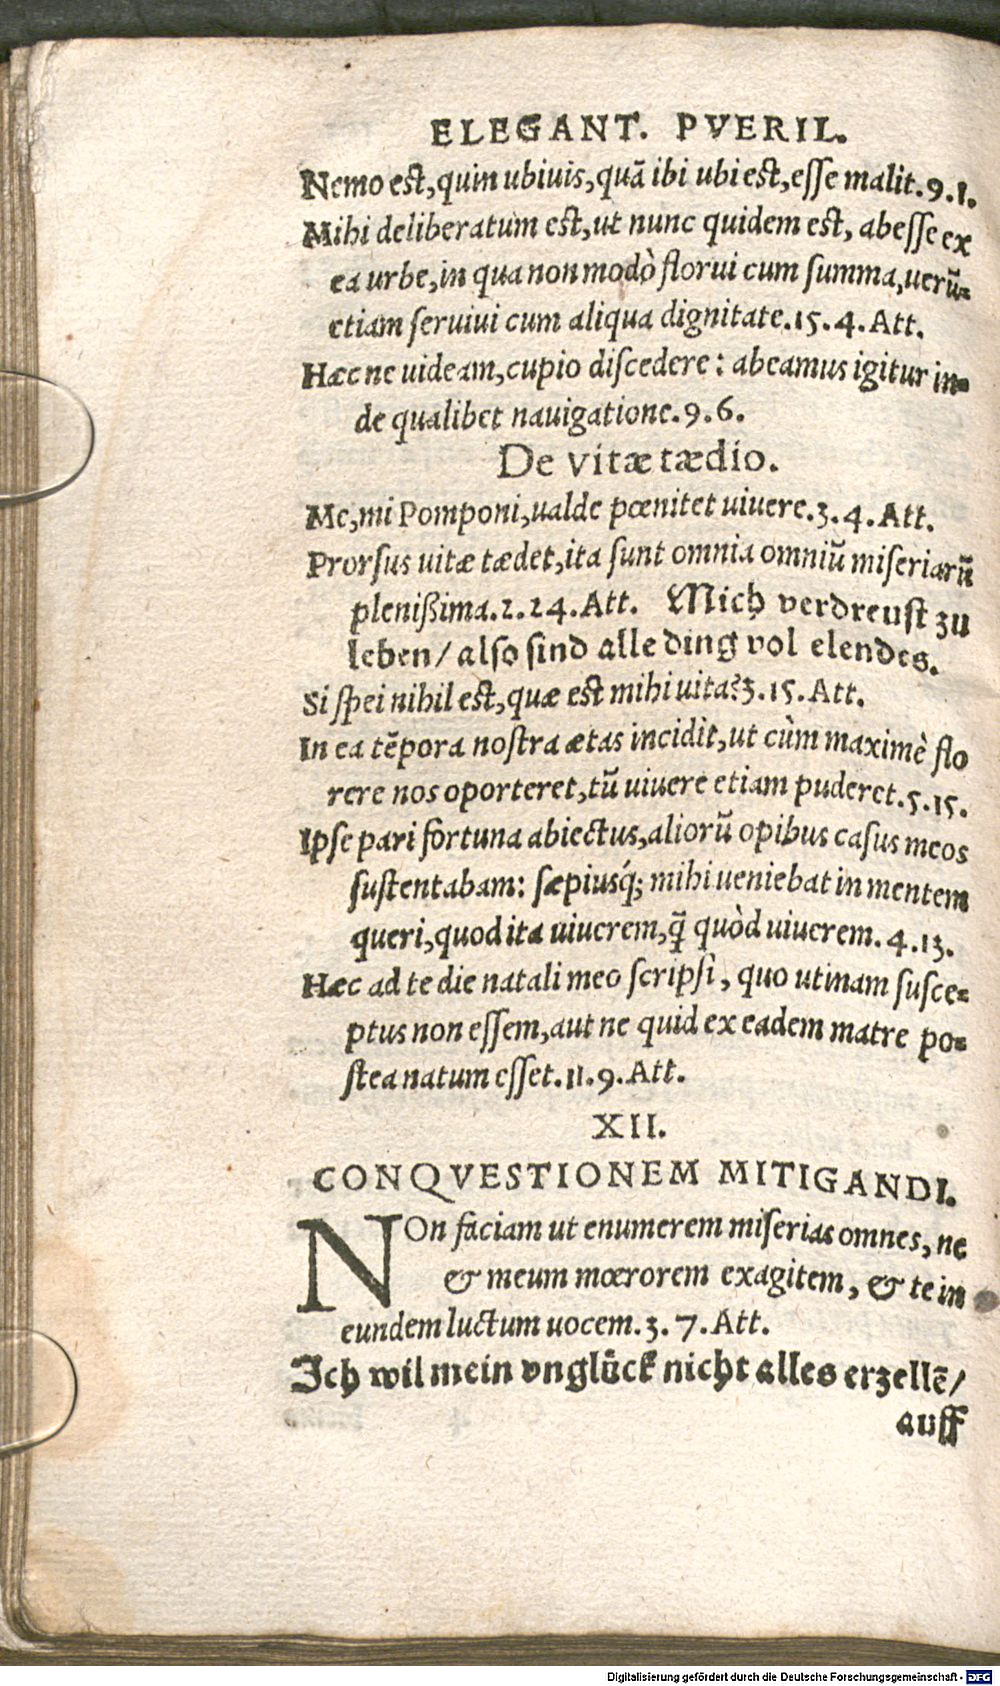 ELEGANT. PVERIL.
Nemo est, quin ubiuis, quā ibi ubi est, esse malit. 9. 1.
Mihi deliberatum est, ut nunc quidem est, abesse ex
ea urbe, in qua non modò florui cum summa, uerū-
etiam seruiui cum aliqua dignitate. 15. 4. Att.
Hæc ne uideam, cupio discedere: abeamus igitur in-
de qualibet nauigatione. 9. 6.
De vitæ tædio.
Me, mi Pomponi, ualde pœnitet uiuere. 3. 4. Att.
Prorsus uitæ tædet, ita sunt omnia omniū miseriarū
plenißima. 2. 24. Att. Mich verdreust zu
leben/ also sind alle ding vol elendes.
Si spei nihil est, quæ est mihi uita? 3. 15. Att.
In ea tēpora nostra ætas incidit, ut cùm maximè flo
rere nos oporteret, tū uiuere etiam puderet. 5. 15.
Ipse pari fortuna abiectus, aliorū opibus casus meos
sustentabam: sæpiusq́; mihi ueniebat in mentem
queri, quod ita uiuerem, q̄ quòd uiuerem. 4. 13.
Hæc ad te die natali meo scripsi, quo utinam susce-
ptus non essem, aut ne quid ex eadem matre po-
stea natum esset. 11. 9. Att.
XII.
CONQVESTIONEM MITIGANDI.
NOn faciam ut enumerem miserias omnes, ne
& meum mœrorem exagitem, & te in
eundem luctum uocem. 3. 7. Att.
Ich wil mein vnglůck nicht alles erzellē/
auff
Digitalisierung gefördert durch die Deutsche Forschungsgemeinschaft - DFG